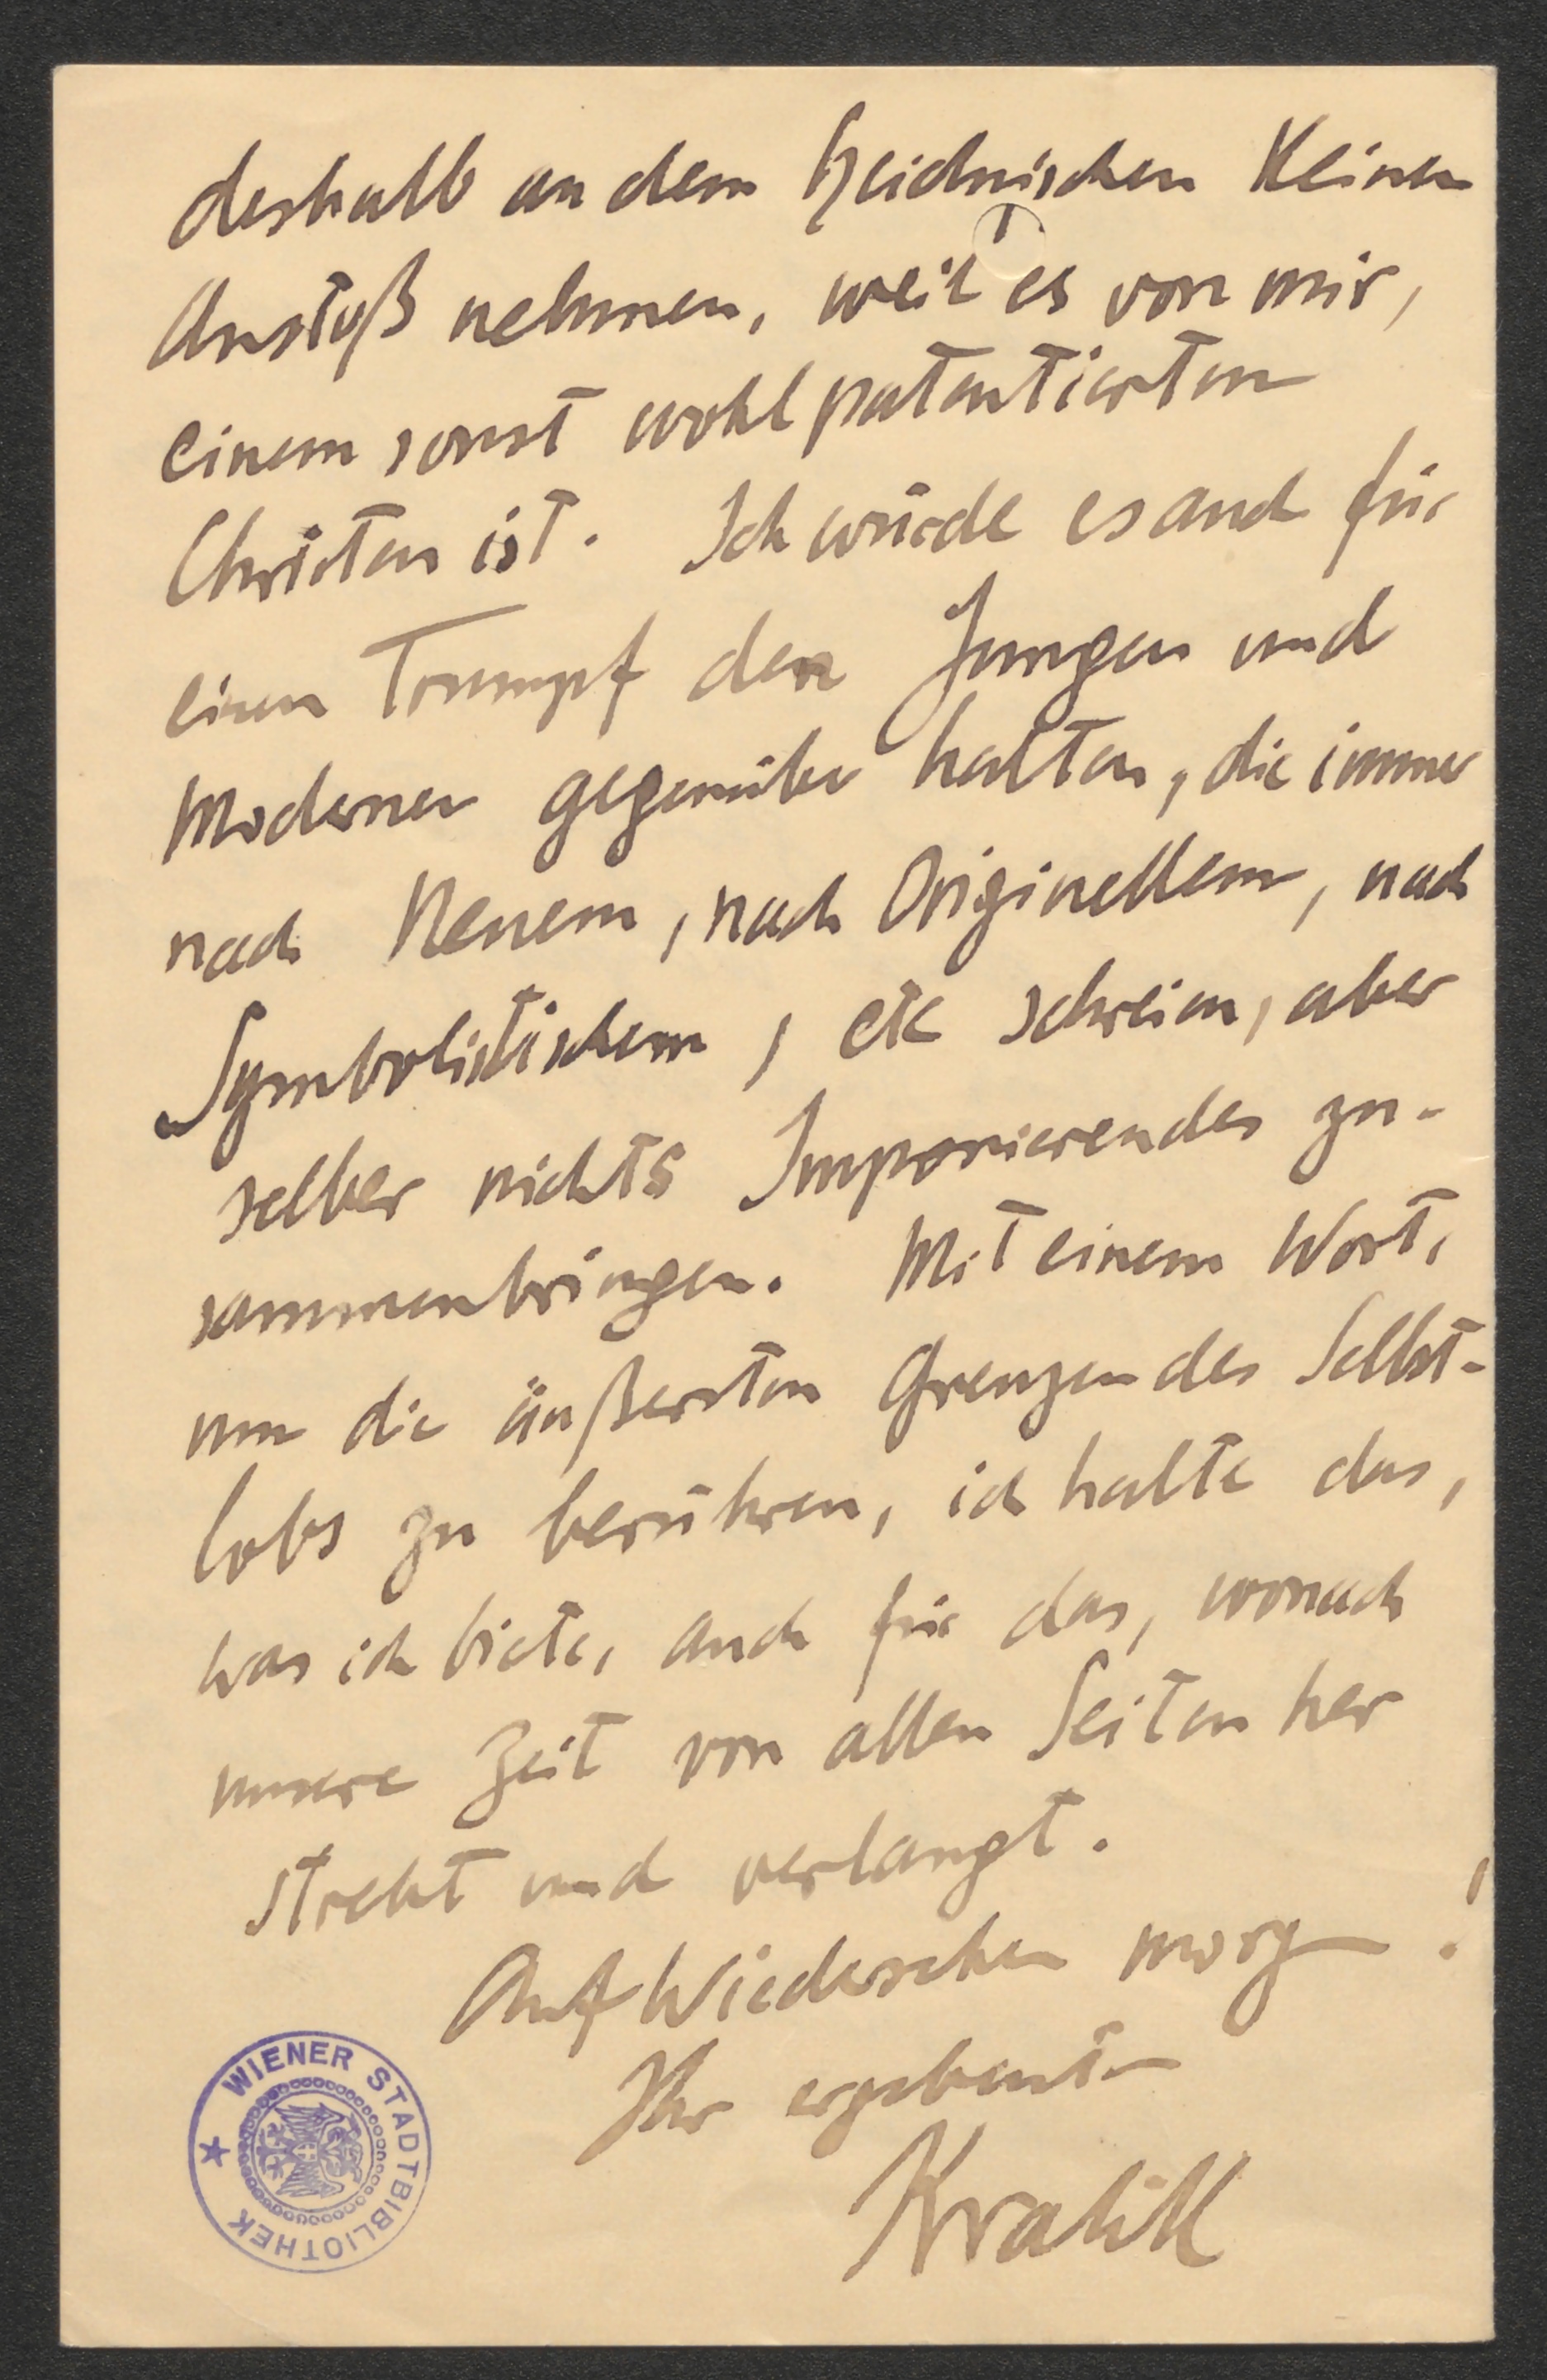 deshalb an dem heidnischen keinen
Anstoß nehmen, weil es von mir,
einem sonst wohl patentierten
Christen ist. Ich würde es auch für
einen Trumpf den Jungen und
Modernen gegenüber halten, die immer
nach Neuem, nach Originellem, nach
Symbolistischem, etc schreien, aber
selber nichts Imponierendes zu-
sammenbringen. Mit einem Wort,
um die äußersten Grenzen des Selbst-
lobs zu berühren, ich halte das,
was ich biete, auch für das, wonach
unsere Zeit von allen Seiten her
strebt und verlangt.
Auf Wiedersehen morgen!
Ihr ergebenster
Kralik
WIENER STADTBIBLIOTHEK